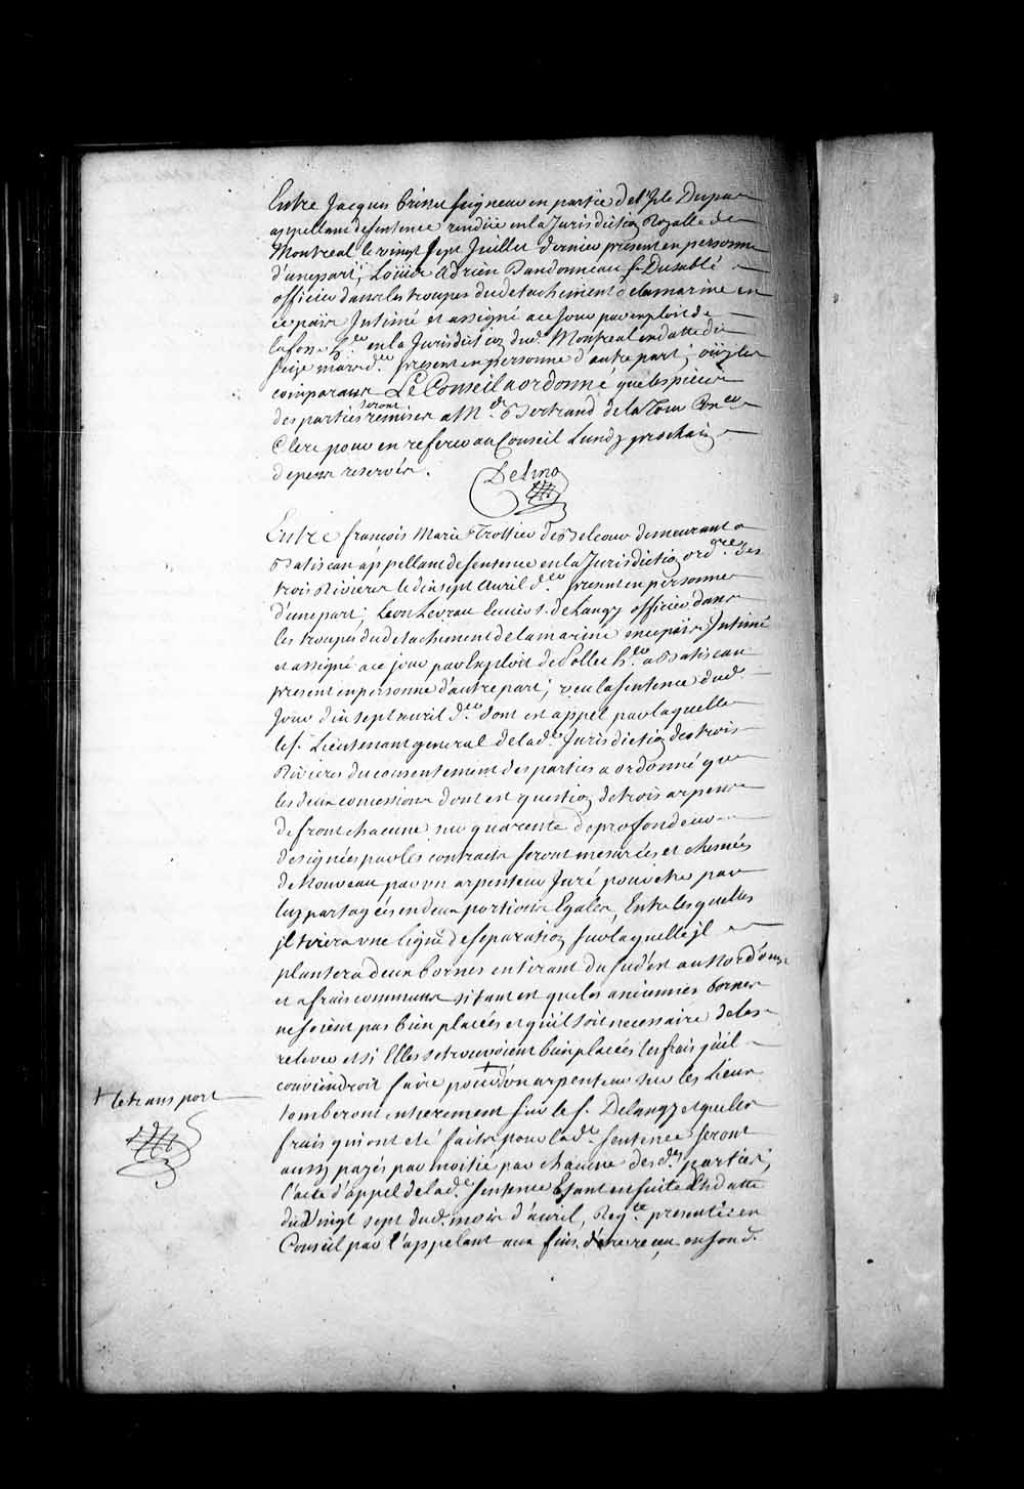 Entre Jacques Brisset seigneur en partie del'Isle Dupas
appellant desentence rendüe enla Jurisdiction Royalle de
Montreal le vingt sept Juillet dernier present en personne
d'unepart; Loüis Adrien Dandonneau sr. Dusablé
officier dans les troupes du detachement delamarine en
ce païs Intimé et assigné ace Jour par exploit de
h.er enla Jurisdiction dud. Montreal endatte du
seize mars d.er present en personne d'autre part; oüy les
comparans Le Conseil a ordonné que les pieces
des parties seront remises a M.e Bertrand de la Tour Con.er
Clerc pour en referer au Conseil Lundy prochain
depens reservés.
Delino
Entre françois Marie Trottier demeurant a
Batiscan appellant de sentence en la Jurisdiction ord.re des
trois Rivieres le dix sept avril d.er present en personne
d'une part; Leon Levrau ecuier s. de Langy officier dans
les troupes du detachement de la marine en ce païs Intimé
et assigné a ce jour par Exploit de Pollet h.er a Batiscan
present en personne d'autre part; veu la sentence dud.
Jour dix sept avril d.er dont est appel par laquelle
le s. Lieutenant general de lad. Jurisdiction des trois
Rivieres du consentement des parties a ordonné que
les deux concessions dont est question de trois arpens
de front chacune sur quarente de profondeur
designées par les contracts seront mesurées et
de Nouveau par un arpenteur Juré pour être par
luy partagées en deux portions Egales, Entre lesquelles
il tirera une ligne de separation sur laquelle il
plantera deux bornes en tirant du sud'est au Nord'oüest
et a frais communs si tant est que les anciennes bornes
ne soient pas bien placées et qu'il soit necessaire de les
relever et si Elles se trouvoient bien placées les frais qu'il
conviendroit faire pour + d'un arpenteur sur les Lieux
+ le transport
tomberont entierement sur le s. Delangy et que les
frais qui ont eté faits pour lad.e sentence seront
aussy payés par moitié par chacune des d. parties;
l'acte d'appel de lad.e sentence Estant ensuite datte
du vingt sept dud. mois d'avril, Req.te presentée en
Conseil par l'appelant aux fins d'être receu en son d.